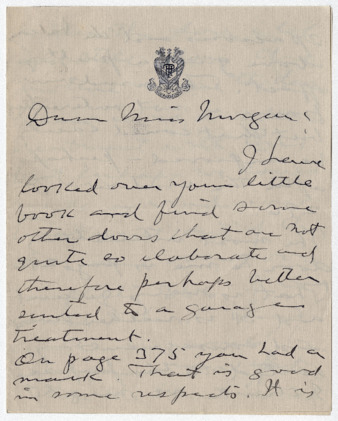 Dear Miss Morgan:
I have
looked over your little
book and find some
other doors that are not
quite so elaborate and
therefore perhaps better
suited to a garage
treatment.
On page 375 you had a
mark. That is good
in some respects. It is